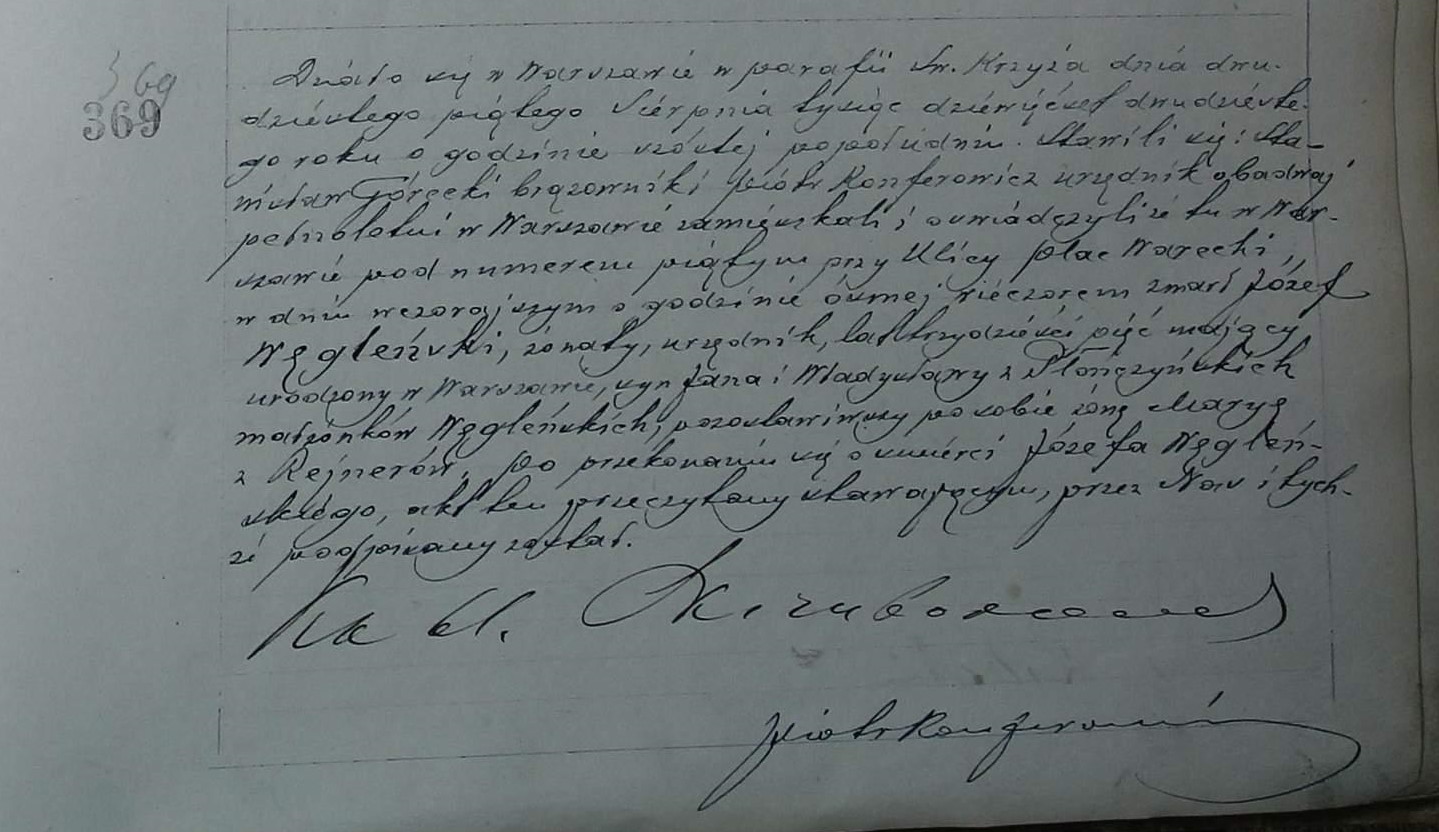 369
369
Działo się w Warszawie w parafii Św. Krzyża dnia dwu-
dziestego piątego Sierpnia tysiąc dziewięćset dwudzieste-
go roku o godzinie szóstej popołudniu. Stawili się: Sta-
nisław Górecki brązownik i Piotr Konferowicz urzędnik obadwaj
pełnoletni w Warszawie zamieszkali i oświadczyli że tu w War-
szawie pod numerem piątym przy Ulicy Plac Warecki,
w dniu wczorajszym o godzinie ósmej wieczorem zmarł Józef
Węgleński, żonaty, urzędnik, lat trzydzieści pięć mający
urodzony w Warszawie, syn Jana i Władysławy z Słończyńskich
małżonków Węgleńskich, pozostawiwszy po sobie żonę Maryę
z Rejnerów. Po przekonaniu się o śmierci Józefa Węgleń-
skiego, akt ten przeczytany stawającym, przez Nas i tych-
że podpisany został.
Piotr Konferowicz